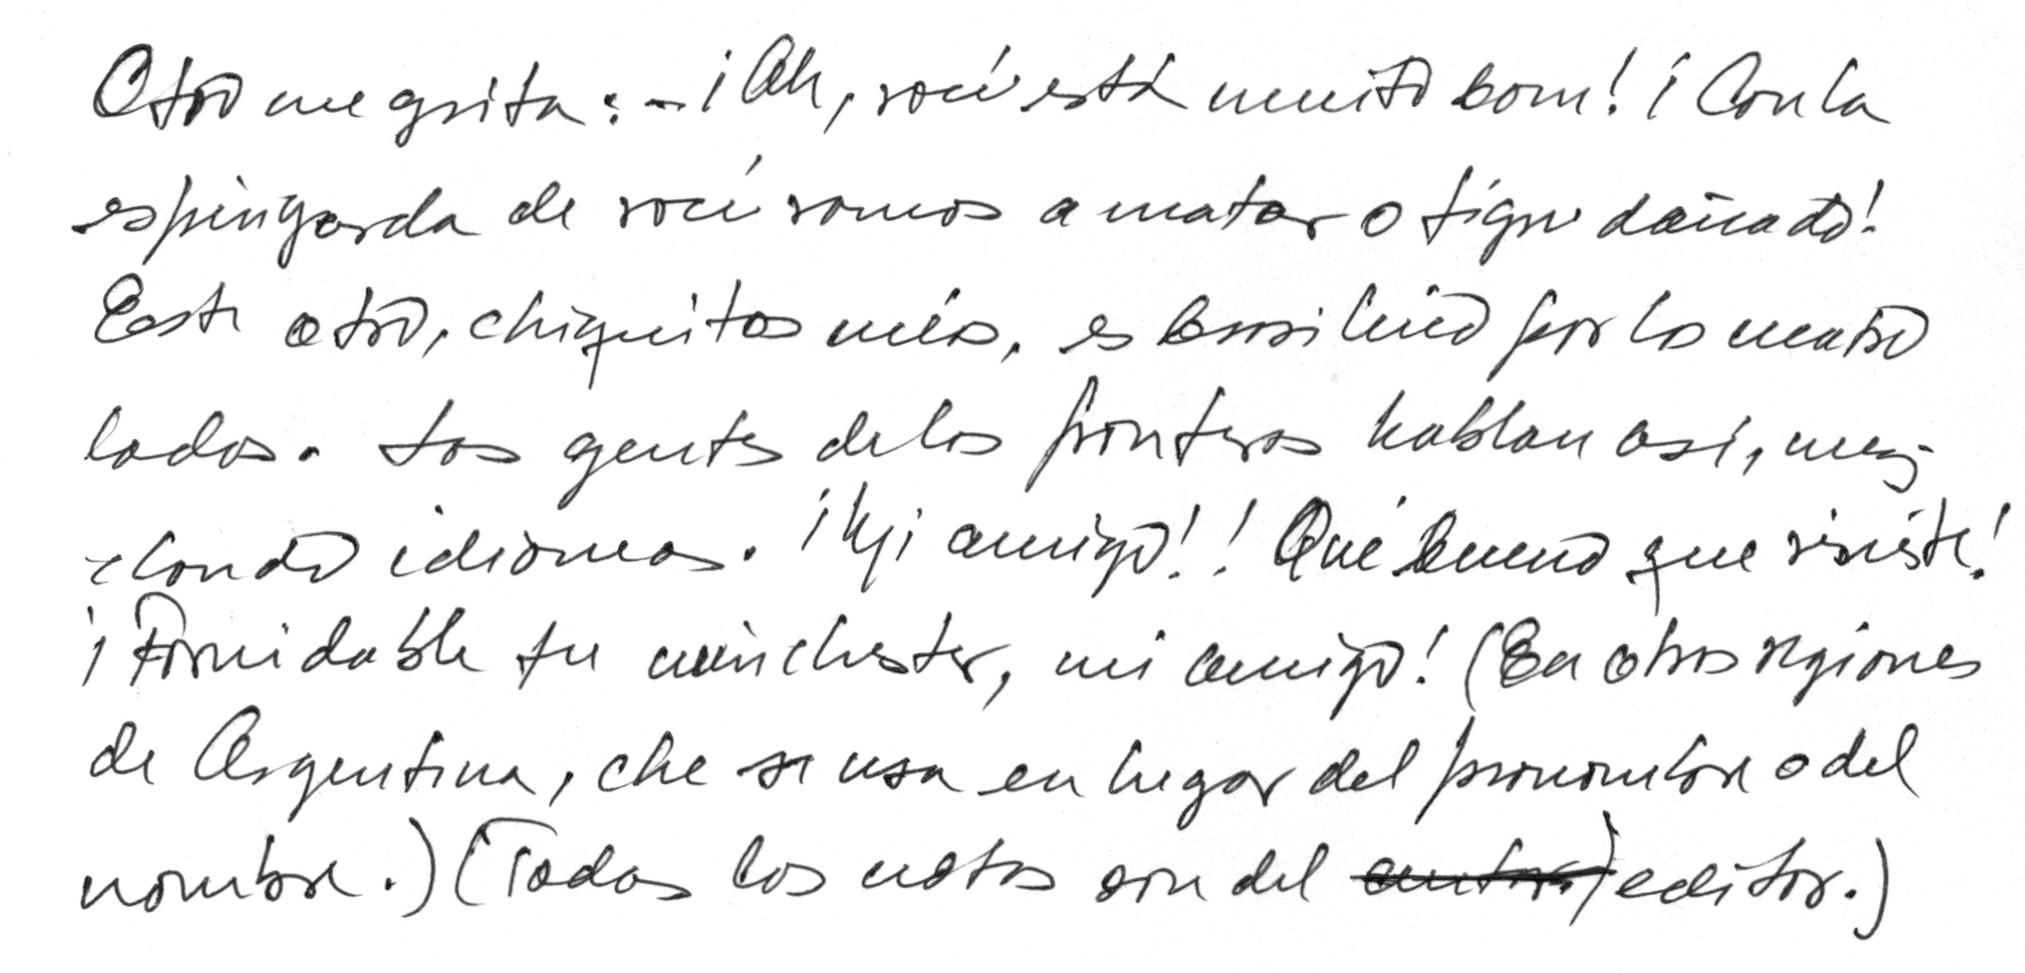 Otro me grita: – ¡Ah, vocé está muito bom! ¡Con la
espingarda de vocé vamos a matar o tigre dañado!
Este otro, chiquitos míos, es brasileño por los cuatro
lados. Las gentes de las fronteras hablan así, mez-
clando idiomas. ¡Mi amigo!! Qué bueno que viniste!
¡Formidable tu winchester, mi amigo! (En otras regiones
de Argentina, che se usa en lugar del pronombre o del
nombre.) (Todas las notas son del autor.) editor.)